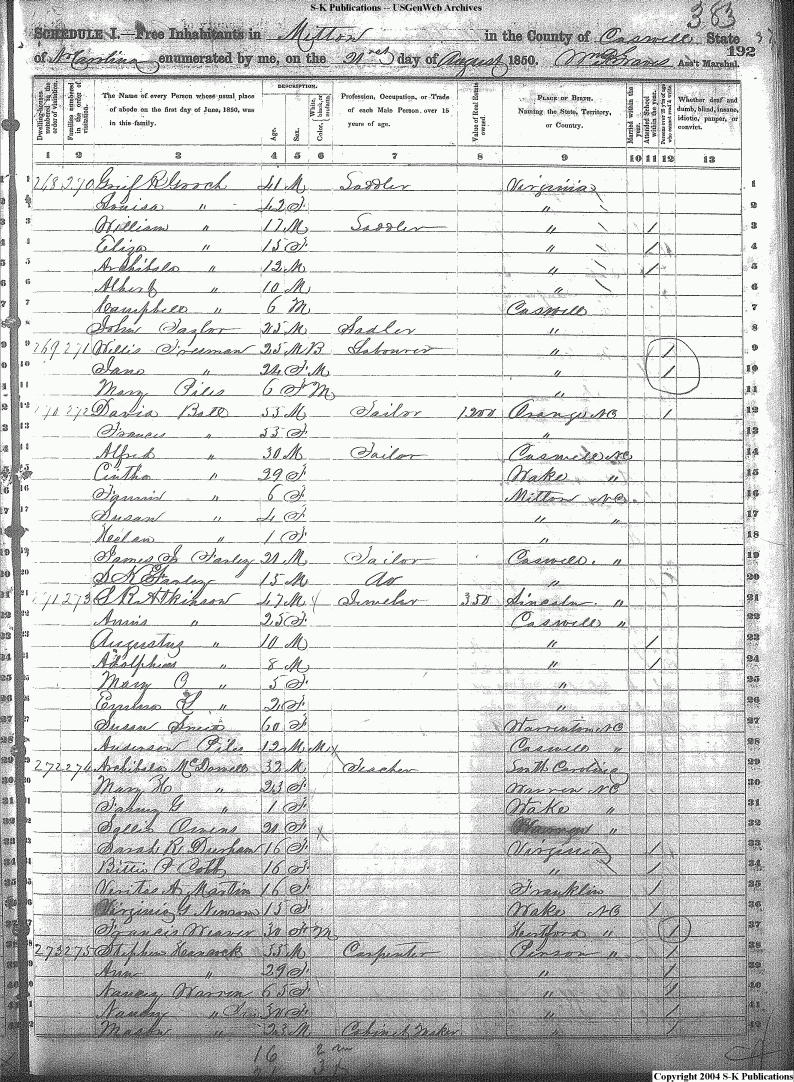 S-K Publications -- USGenWeb Archives
383
SCHEDULE I.—Free Inhabitants in Milton in the County of Caswell State
of N. Carolina enumerated by me, on the day of August 1850. Wm Graves Ass't Marshal.
192
Dwelling-houses numbered in the order of visitation.
Families numbered in the order of visitation.
The Name of every Person whose usual place of abode on the first day of June, 1850, was in this family.
DESCRIPTION.
Age.
Sex.
White, black, or mulatto.
Color,
Profession, Occupation, or Trade of each Male Person over 15 years of age.
Value of Real Estate owned.
PLACE OF BIRTH.
Naming the State, Territory, or Country.
Married within the year.
Attended School within the year.
Persons over 20 y'rs of age who cannot read & write.
Whether deaf and dumb, blind, insane, idiotic, pauper, or convict.
1 2 3 4 5 6 7 8 9 10 11 12 13
1 268 270 Gooch 41 M Saddler Virginia 1
2 Louisa " 42 F " 2
3 William " 17 M Saddler " / 3
4 Eliza " 15 F " / 4
5 Archibald " 12 M " / 5
6 Albert " 10 M " 6
7 Campbell " 6 M Caswell 7
8 John Taylor 25 M Sadler " 8
9 269 271 Willis Freeman 25 M B Labourer " / 9
10 Jane " 24 F M " / 10
11 Mary Piles 6 F M " 11
12 270 272 Ball 55 M Tailor 1200 Orange NC / 12
13 Francis " 53 F " 13
14 Alfred " 30 M Tailor Caswell NC 14
15 " 29 F Wake " 15
16 " 6 F Milton NC 16
17 Susan " 4 F " " 17
18 " 1 F " 18
19 James Farley M Tailor Caswell " 19
20 Farley 15 M Do " 20
21 271 273 Atkinson 47 M 350 Lincoln " 21
22 " 25 F Caswell " 22
23 Augustus " 10 M " / 23
24 Adolphus " 8 M " / 24
25 Mary " 5 F " 25
26 " 2 F " 26
27 Susan 60 F Warrenton NC 27
28 Anderson Piles 12 M M Caswell " 28
29 272 274 Archibald McDowell 32 M Teacher South Carolina 29
30 Mary H " 23 F Warren NC 30
31 Fanny G " 1 F Wake " 31
32 Sallie Owens F " 32
33 Sarah R Durham 16 F Virginia / 33
34 Bettie P Cobb 16 F " / 34
35 A Martin 16 F Franklin / 35
36 Virginia G 15 F Wake NC / 36
37 Francis Weaver 30 F M Hertford " / 37
38 273 275 Stephen 55 M Carpenter Person " / 38
39 Ann " 29 F " / 39
40 Nancy Warren 65 F " / 40
41 Nancy " F " / 41
42 Mason " 23 M Cabinet Maker " / 42
16
Copyright 2004 S-K Publications